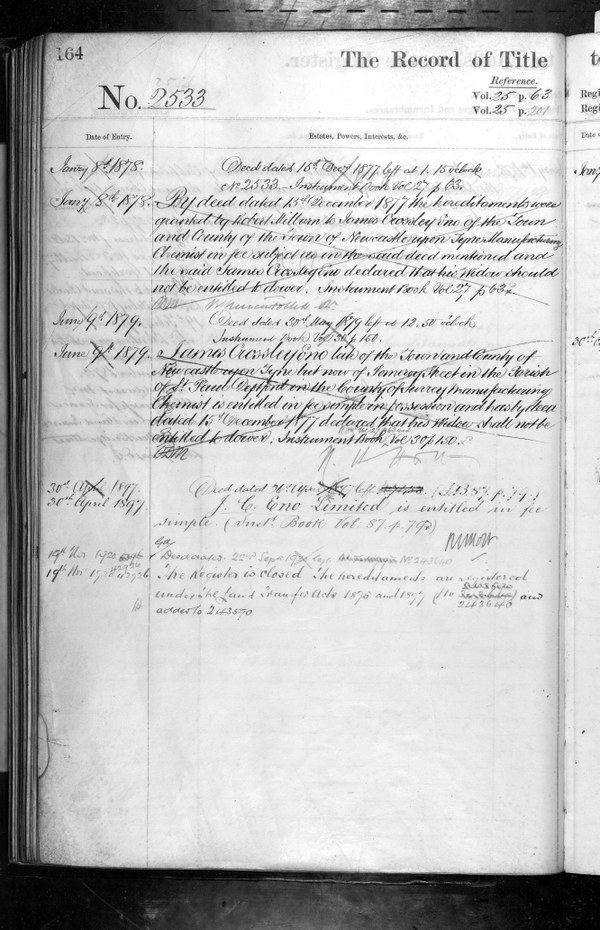 164
The Record of Title
Reference.
No. 2533
Vol. 25 p. 63
Vol. 25 p. 201
Date of Entry.
Estates, Powers, Interests, &c.
Janry 8th 1878. Deed dated 15th Decr 1877 left at 1.15 o'clock
No 2533 Instrument Book Vol 27 p 63.
Janry 8th 1878. By deed dated 15th December 1877 the hereditaments were
granted by Robert Milburn to James Crossley Eno of the Town
and County of the Town of Newcastle upon Tyne Manufacturing
Chemist in fee subject as in the said deed mentioned and
the said James Crossley Eno declared that his Widow should
not be entitled to dower. Instrument Book Vol 27 p 63
June 9th 1879. Deed dated 30th May 1879 left at 12.50 o'clock
Instrument Book Vol 30 p 150.
June 9th 1879. James Crossley Eno late of the Town and County of
Newcastle upon Tyne but now of Pomeroy Street in the Parish
of St. Paul Deptford in the County of Surrey manufacturing
Chemist is entitled in fee simple in possession and has by deed
dated 15th December 1877 declared that his Widow shall not be
entitled to dower. Instrument Book Vol 30 p 150.
30th April 1897. Deed dated left
30th April 1897. J. C. Eno Limited is entitled in fee
simple. (Inst. Book Vol. 57. p. 79)
19th Nov 1920 Deed dated 22nd Sept
19th Nov The Register is closed The hereditaments are registered
under the Land Transfer Acts 1875 and 1897 (to 243646) and
added to 243570